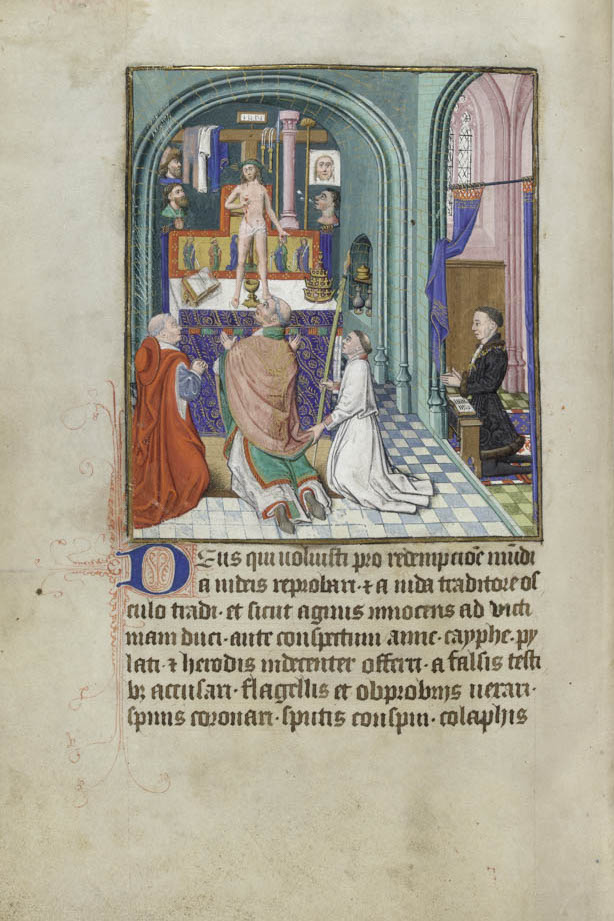 Deus qui uoluisti pro redempcioē mūdi
a iudeis reprobari · ⁊ a iuda traditore os
culo tradi · et sicut agnus innocens ad victi
mam duci · ante conspectum anne · cayphe · py
lati · ⁊ herodis indecenter offerri · a falsis testi
bꝫ accusari · flagellis et obprobrijs uexari ·
spinis coronari · sputis conspui · colaphis